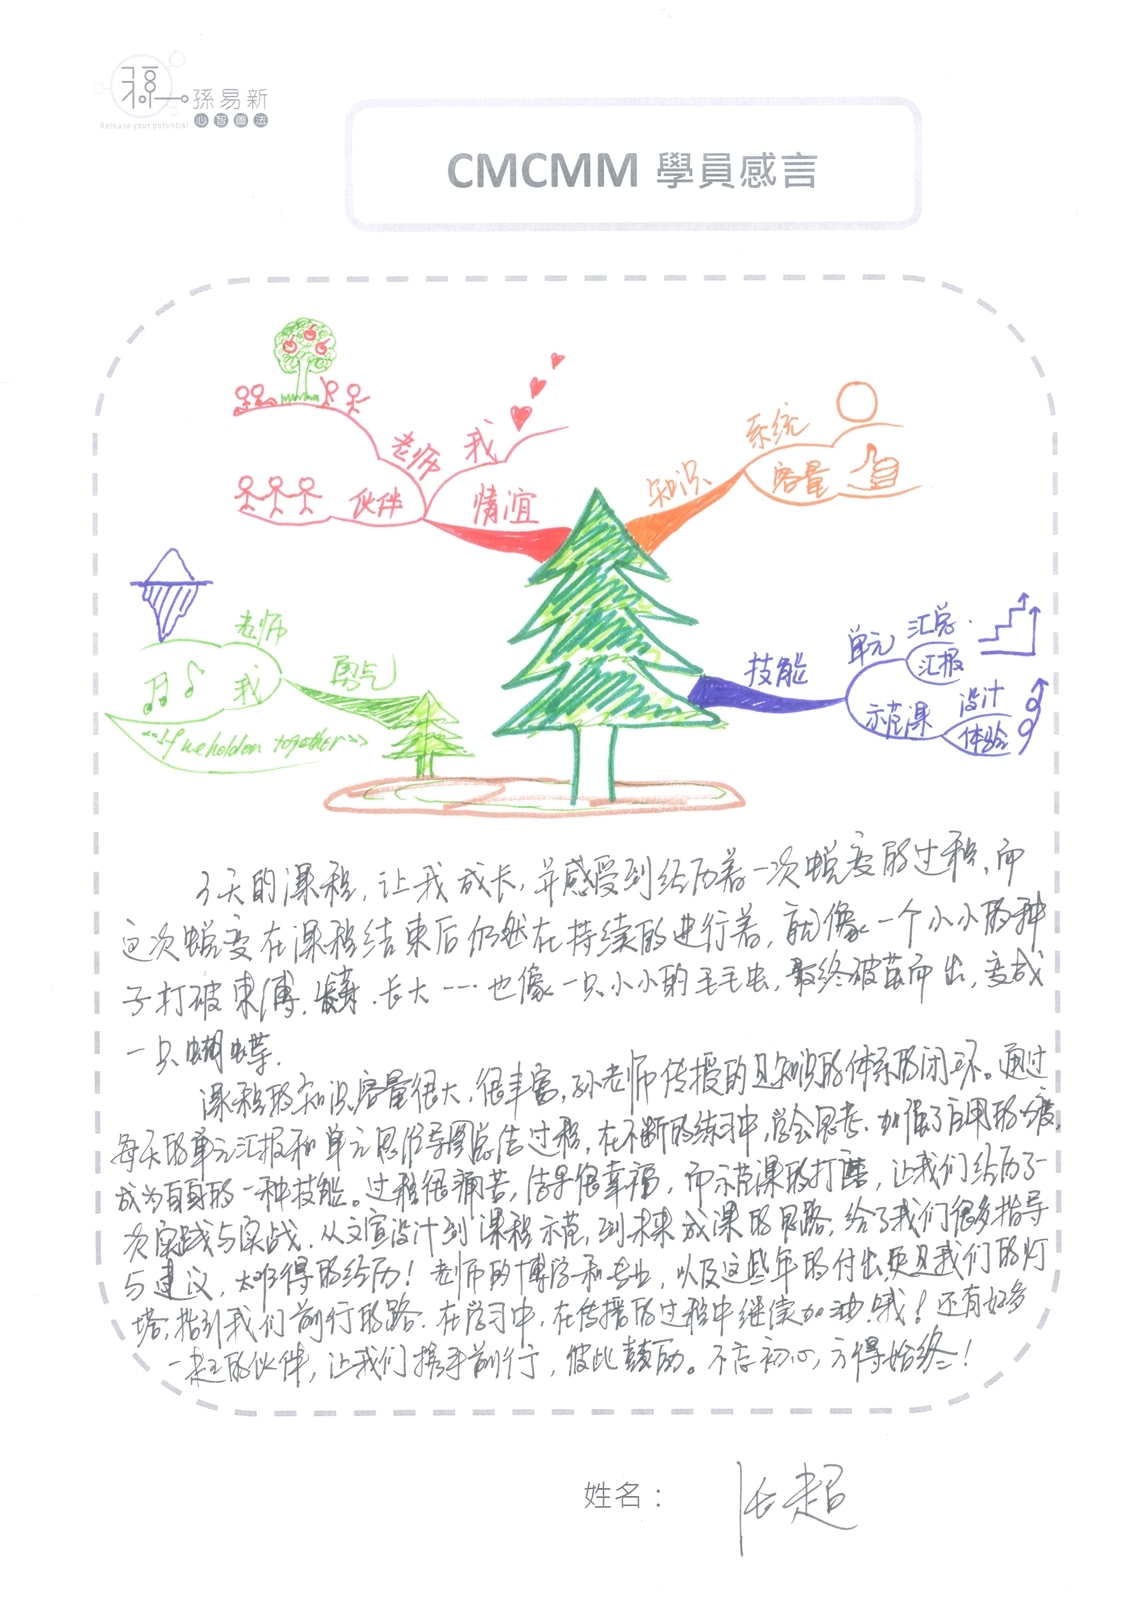 孫易新
心智圖法
Release your potential
CMCMM 學員感言
老师
我
伙伴
情谊
知识
系统
容量
老师
我
勇气
"If we hold on together"
技能
单元
汇总
汇报
示范课
设计
体验
3天的课程,让我成长,并感受到经历着一次蜕变的过程,而
这次蜕变在课程结束后仍然在持续的进行着,就像一个小小的种
子打破束缚,长大……也像一只小小的毛毛虫,最终破茧而出,变成
一只蝴蝶.
课程的知识容量很大,很丰富,孙老师传授的是知识的体系的闭环。通过
每天的单元汇报和单元思维导图总结过程,在不断的练习中,学会思考,加强了自用的
成为自身的一种技能。过程很痛苦,结果很幸福,而示范课的打磨,让我们经历了一
次实践与实战,从文宣设计到课程示范,到未来成课的思路,给了我们很多指导
与建议,太难得的经历!老师的博学和专业,以及这些年的付出更是我们的灯
塔,指引我们前行的路.在学习中,在传播的过程中继续加油哦!还有好多
一起的伙伴,让我们携手前行,彼此鼓励。不忘初心,方得始终!
姓名:
张超